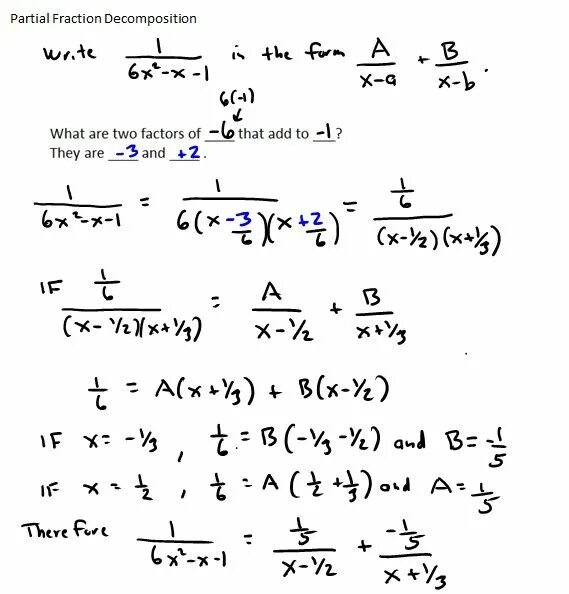 Partial Fraction Decomposition
Write 1/(6x²-x-1) in the form A/(x-a) + B/(x-b).
6(-1)
What are two factors of -6 that add to -1?
They are -3 and +2.
1/(6x²-x-1) = 1/(6(x -3/6)(x +2/6)) = (1/6)/((x-1/2)(x+1/3))
IF (1/6)/((x-1/2)(x+1/3)) = A/(x-1/2) + B/(x+1/3)
1/6 = A(x+1/3) + B(x-1/2)
IF x = -1/3, 1/6 = B(-1/3-1/2) and B = -1/5
IF x = 1/2, 1/6 = A(1/2+1/3) and A = 1/5
Therefore 1/(6x²-x-1) = (1/5)/(x-1/2) + (-1/5)/(x+1/3)